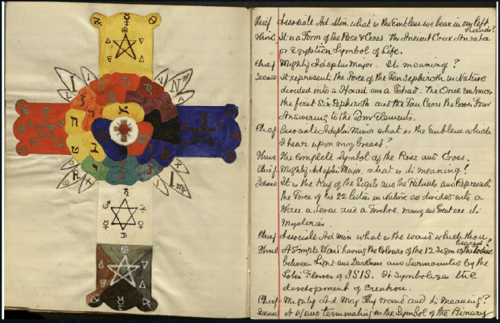 Chief Associate Ad. Min. what is the Emblem we bear in our left hands?
Hine It is a Form of the Rose & Cross. The Ancient Crux Ansata
or Egyptian Symbol of Life.
Chief Mighty Adeptus Major. Its meaning?
It represents the Force of the Ten Sephiroth in Nature
divided into a Hexad and a Tetrad. The Oval embraces
the first Six Sephiroth and the Tau Cross the lower Four
Answering to the Four Elements.
Chief Associate Adeptus Minor what is the Emblem which
I bear upon my breast?
The Complete Symbol of the Rose and Cross.
Chief Mighty Adeptus Major, what is its meaning?
It is the Key of the Sigils and the Rituals and Represents
the Force of the 22 letters in Nature as divided into a
Three a Seven and a Twelve, many and Great are its
Mysteries.
Chief Associate Ad Min what is the wand which thou bearest?
A Simple Wand having the Colours of the 12 Signs of the Zodiac
between Light and Darkness and Surmounted by the
Lotus Flower of ISIS. It Symbolizes the
development of Creation.
Chief Mighty Ad. Maj Thy Wand and its Meaning?
A Wand terminating in the Symbol of the Binary